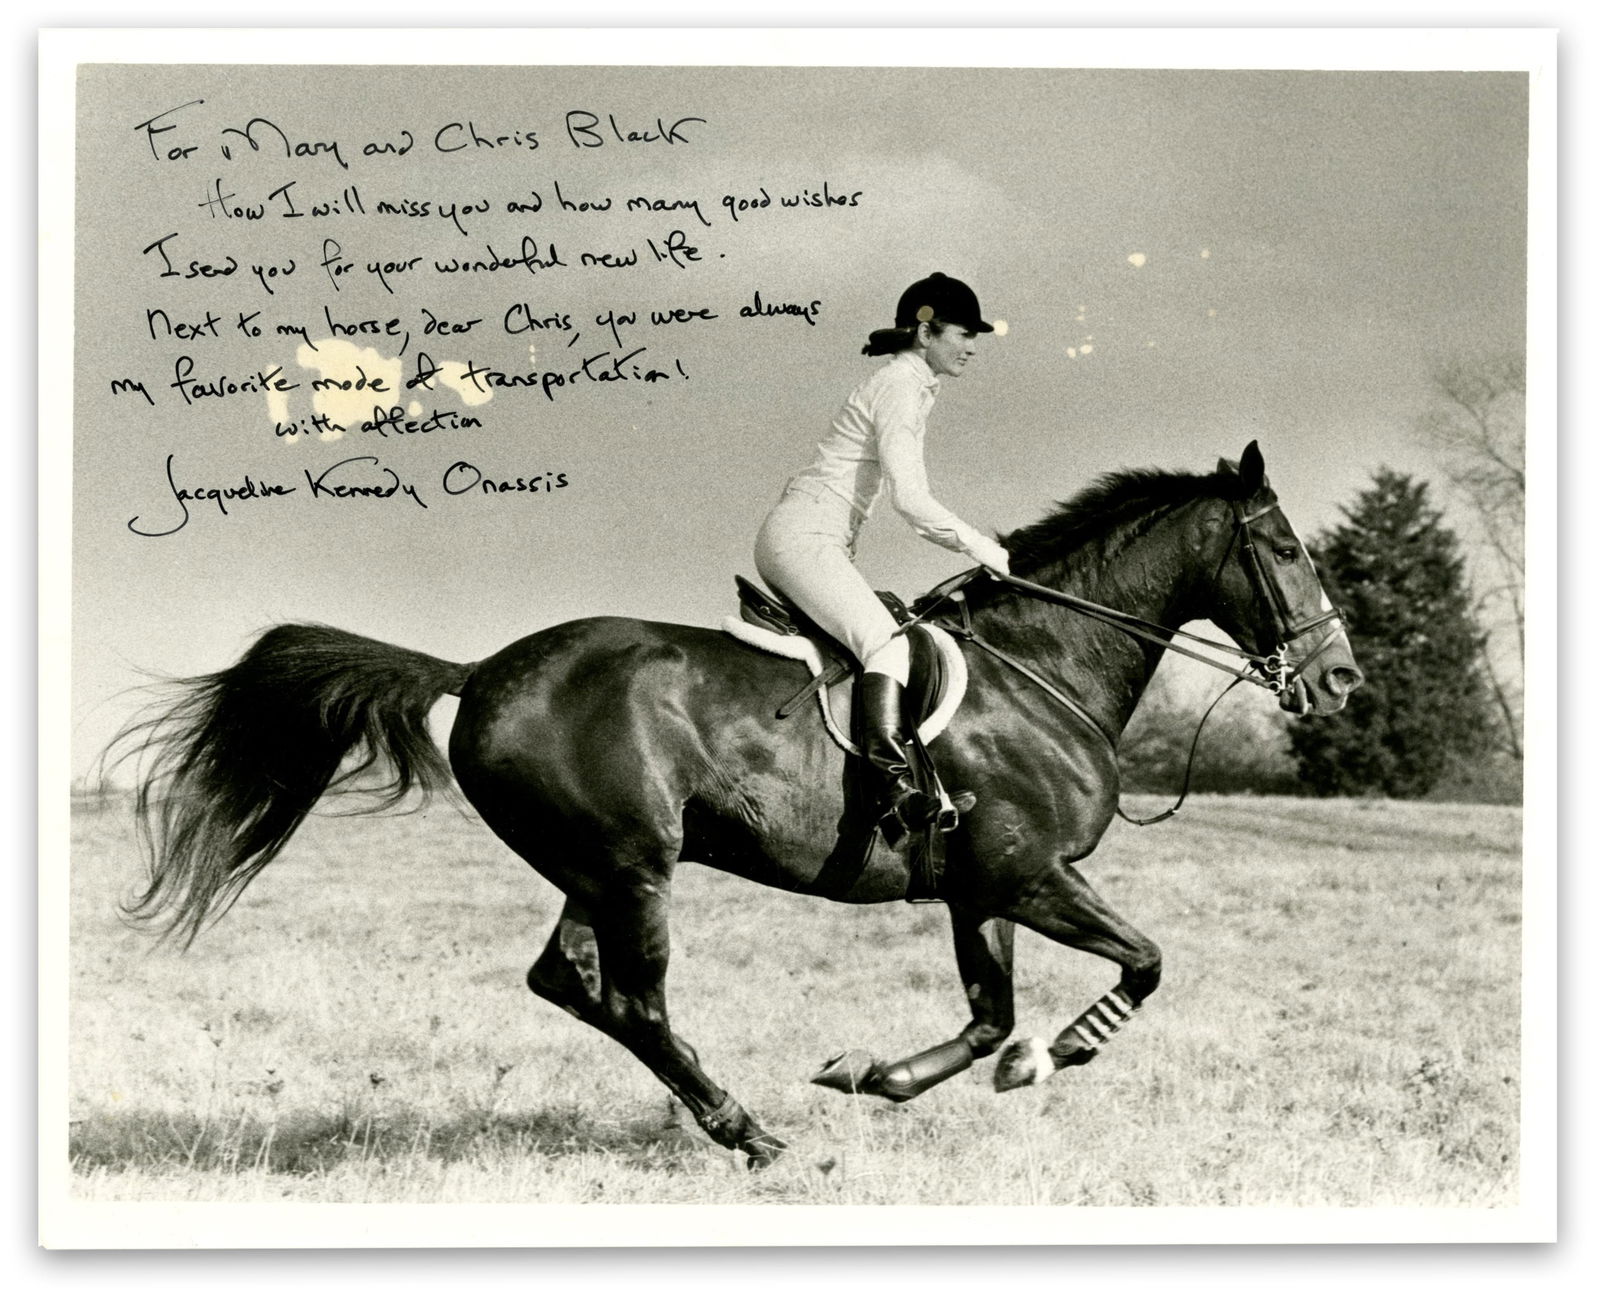 For Mary and Chris Black
How I will miss you and how many good wishes
I send you for your wonderful new life.
Next to my horse, dear Chris, you were always
my favorite mode of transportation!
with affection
Jacqueline Kennedy Onassis